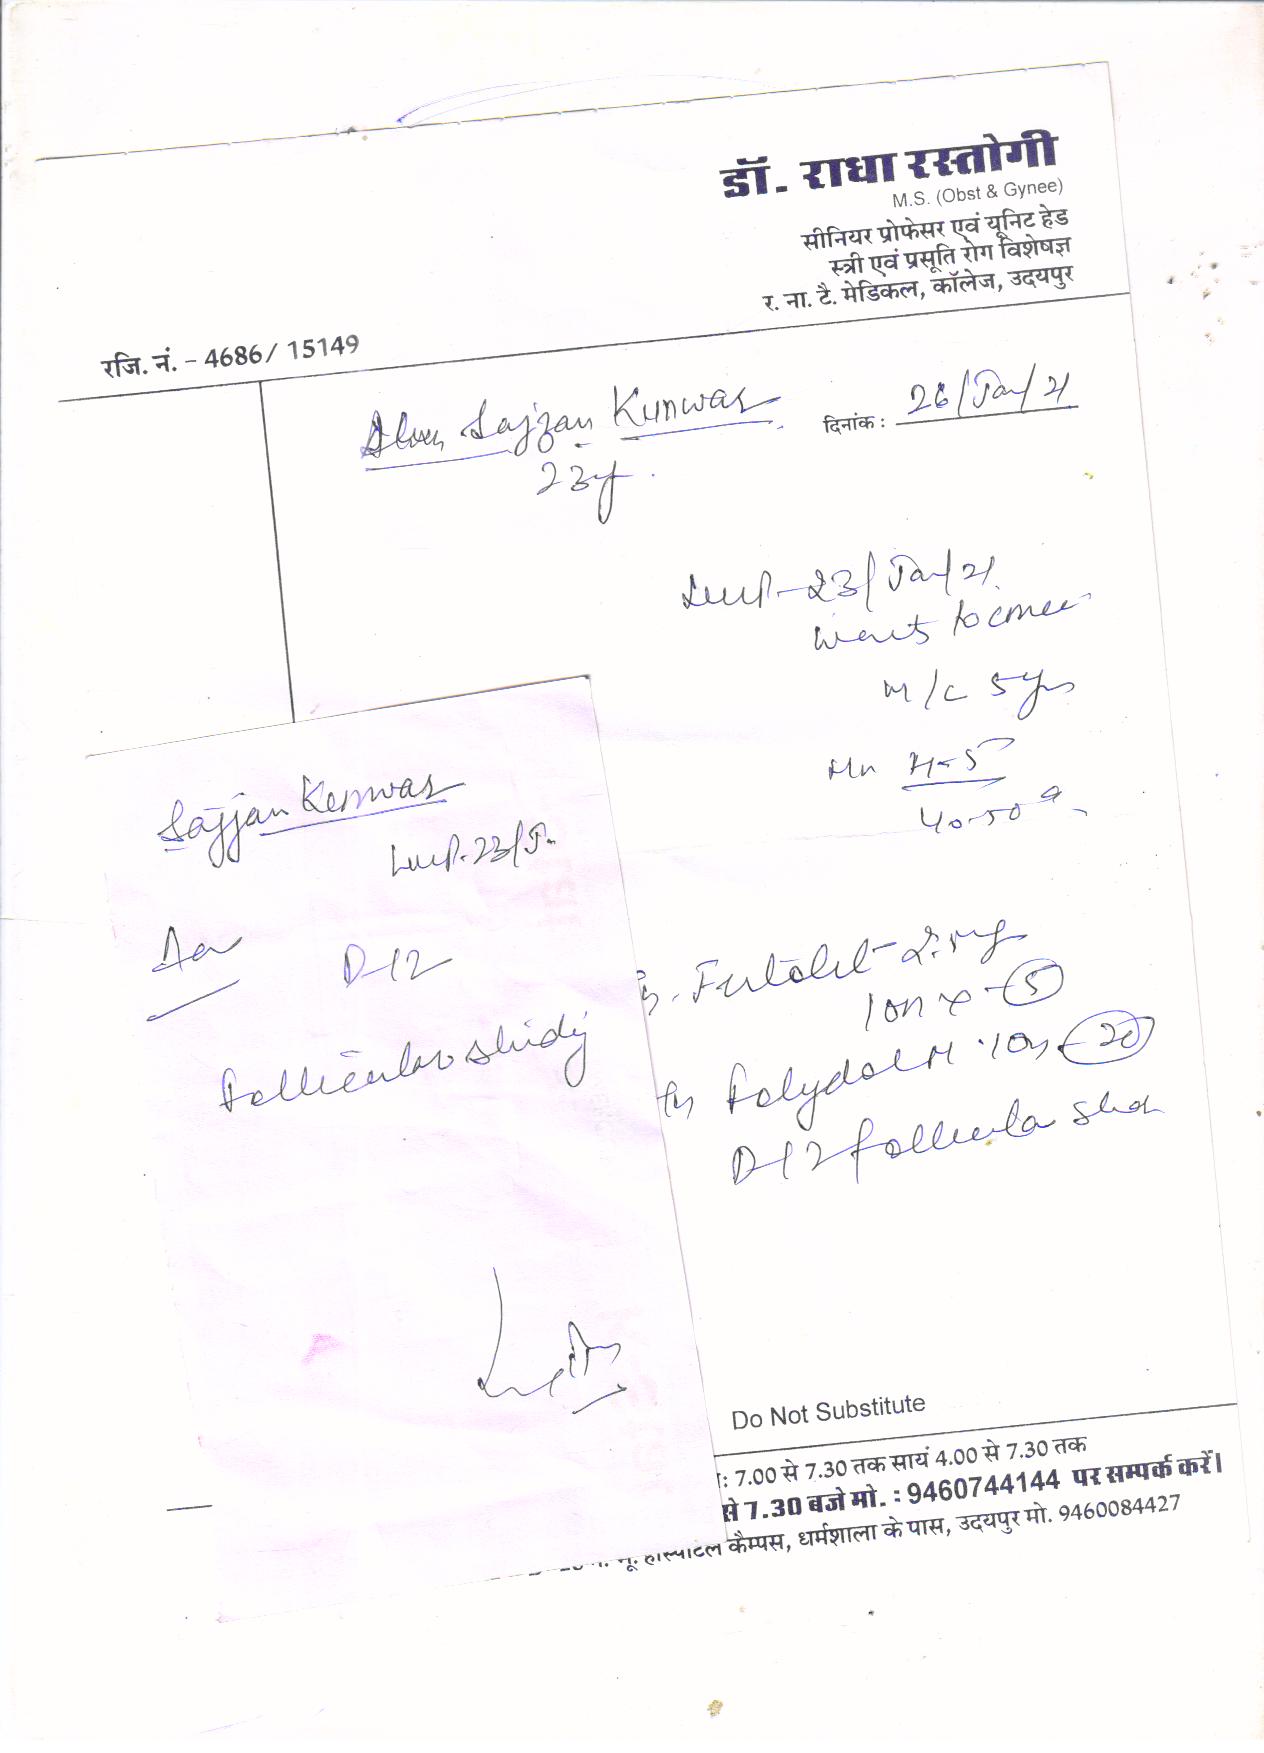 डॉ. राधा रस्तोगी
M.S. (Obst & Gynee)
सीनियर प्रोफेसर एवं यूनिट हेड
स्त्री एवं प्रसूति रोग विशेषज्ञ
र. ना. टै. मेडिकल, कॉलेज, उदयपुर
रजि. नं. - 4686/ 15149
Sajjan Kunwar
दिनांक : 26/Jan/21
23y
LMP-23/Jan/21
wants to
M/C 5yrs
4-5
40-50
Sajjan Kunwar
LMP-23/J
D-12
Follicular study
2.5mg
1 on x -5
20
D-12 follicular
Do Not Substitute
: 7.00 से 7.30 तक सायं 4.00 से 7.30 तक
से 7.30 बजे मो. : 9460744144 पर सम्पर्क करें।
हॉस्पीटल कैम्पस, धर्मशाला के पास, उदयपुर मो. 9460084427